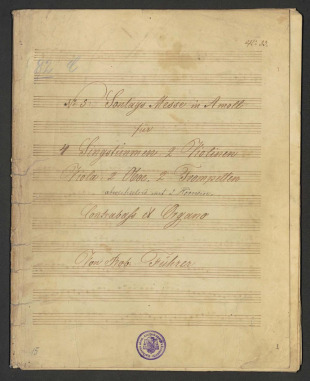 No 3 Sontags Messe in A moll
für
4 Singstimmen 2 Violinen
Viola 2 Oboe, 2 Trompetten
2
Contrabaß et Organo
Von Rob. Führer